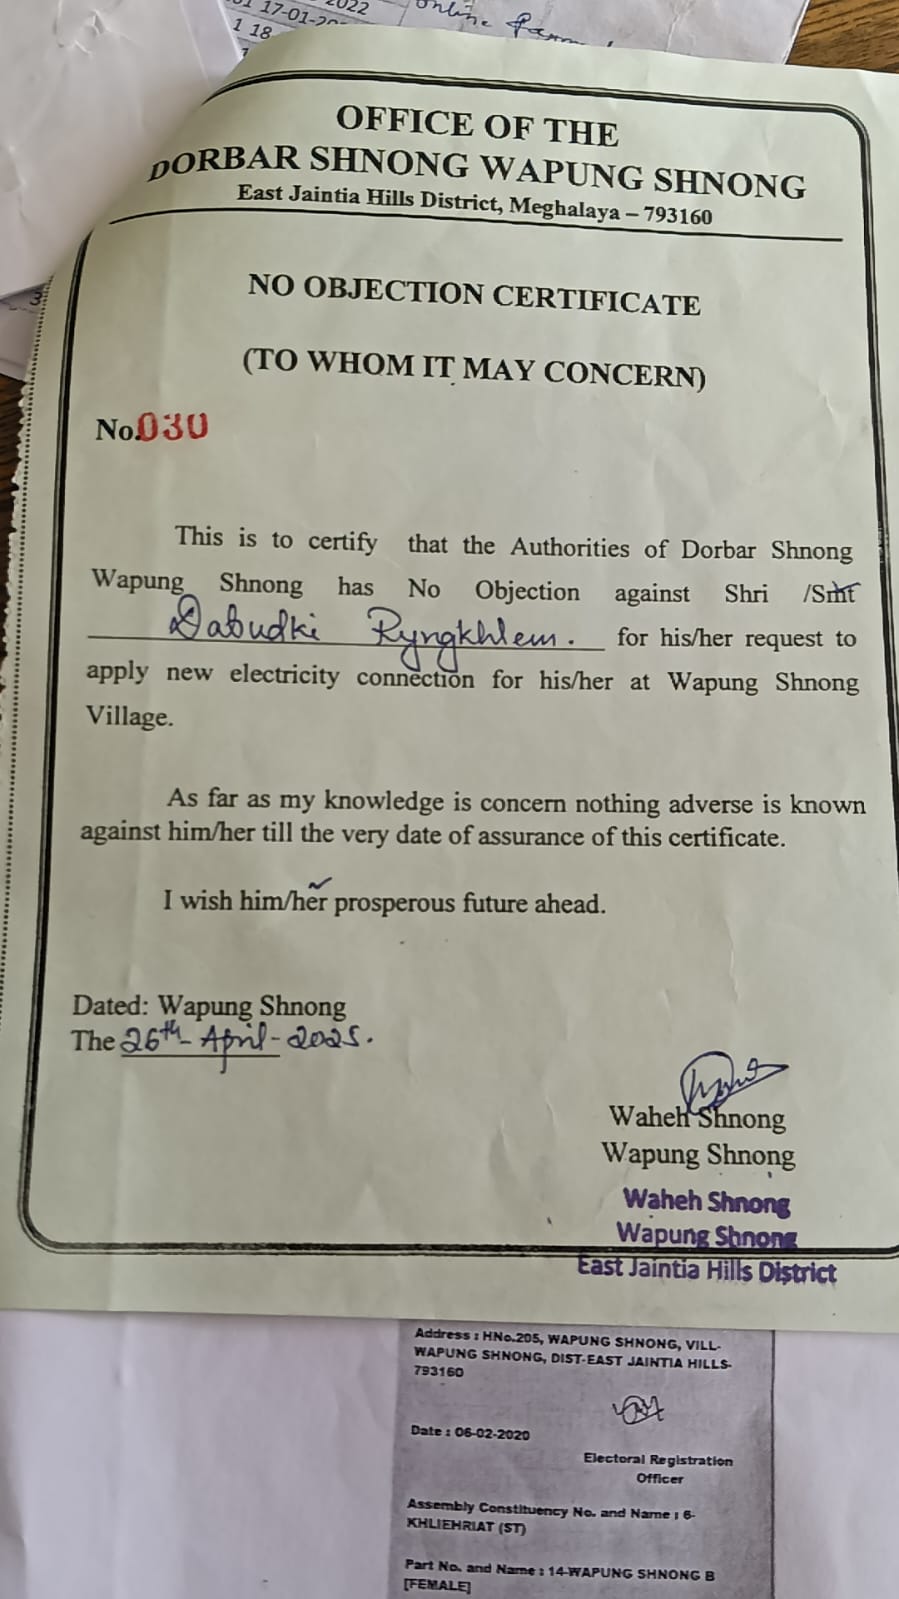 2022
17-01-20
online
1 18
3
OFFICE OF THE
DORBAR SHNONG WAPUNG SHNONG
East Jaintia Hills District, Meghalaya – 793160
NO OBJECTION CERTIFICATE
(TO WHOM IT MAY CONCERN)
No.030
This is to certify that the Authorities of Dorbar Shnong
Wapung Shnong has No Objection against Shri /Smt
Dabudki Ryngkhlem. for his/her request to
apply new electricity connection for his/her at Wapung Shnong
Village.
As far as my knowledge is concern nothing adverse is known
against him/her till the very date of assurance of this certificate.
I wish him/her prosperous future ahead.
Dated: Wapung Shnong
The 26th- April- 2025.
Waheh Shnong
Wapung Shnong
Waheh Shnong
Wapung Shnong
East Jaintia Hills District
Address : HNo.205, WAPUNG SHNONG, VILL-
WAPUNG SHNONG, DIST-EAST JAINTIA HILLS-
793160
Date : 06-02-2020
Electoral Registration
Officer
Assembly Constituency No. and Name : 6-
KHLIEHRIAT (ST)
Part No. and Name : 14-WAPUNG SHNONG B
[FEMALE]